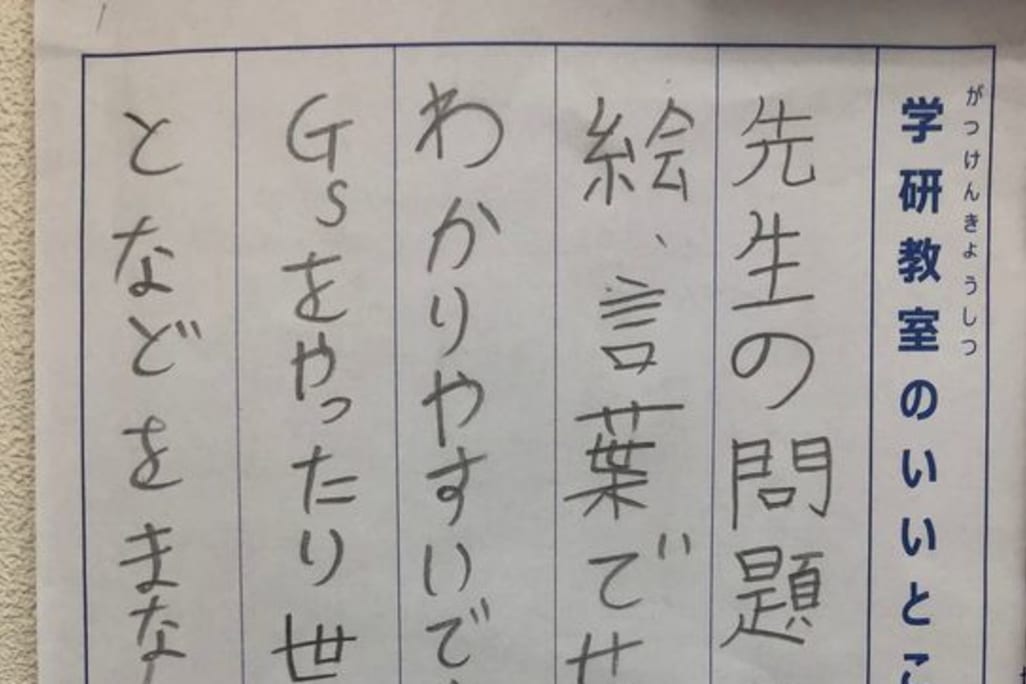 がっけんきょうしつ
学研教室のいいとこ
先生の問題
絵、言葉でせ
わかりやすいで
Gsをやったり世
となどをまな